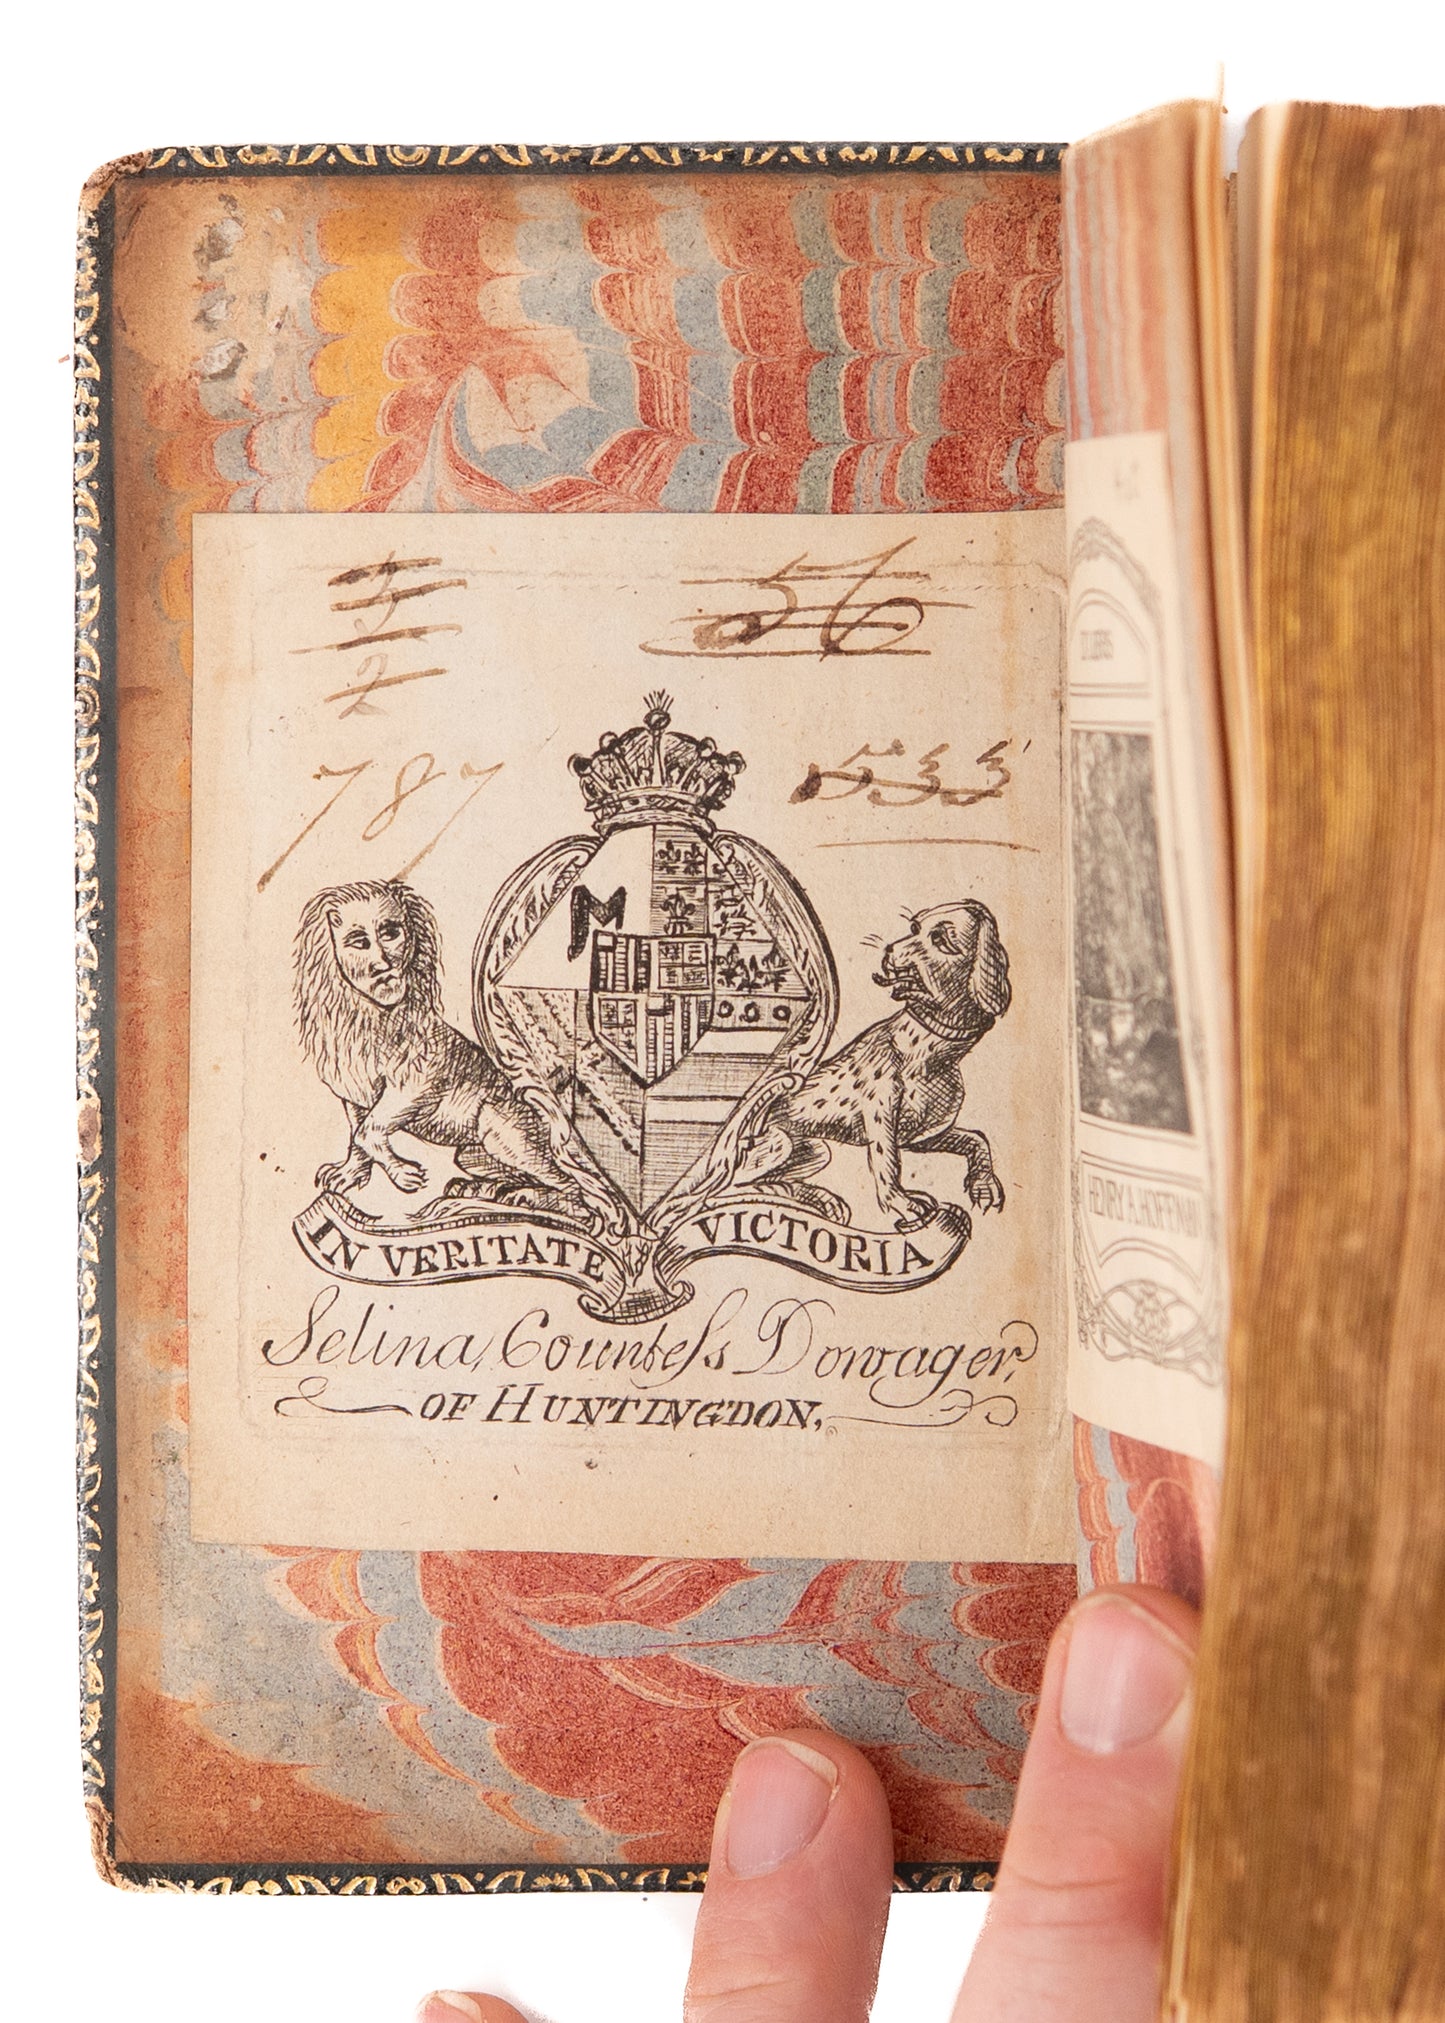 5
2
56
787
533
IN VERITATE VICTORIA
Selina, Countess Dowager,
OF HUNTINGDON.
HENRY A. HOFFMAN